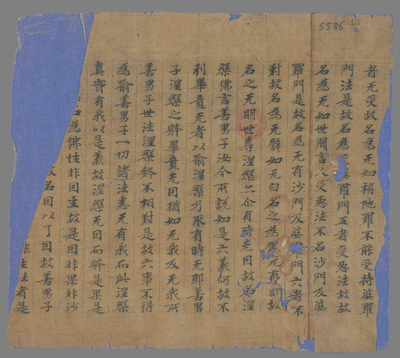 5586
者无受故名為无如旃他羅不能受持婆羅
門法是故名為羅門五者受惡法故故
名為无如世間言受惡法不名沙門及婆
羅門是故名為无有沙門及婆羅門六者不
對故名為无辟如无白名之為黑无有明故
名之无明世尊涅槃亦尒有時无因故名涅
槃佛言善男子汝今所說如是六義何故不
引畢竟无者以喻涅槃乃取有時无耶善男
子涅槃之體畢竟无因猶如无我及无我所
善男子世法涅槃終不相對是故六事不得
為喻善男子一切諸法悉无有我而此涅槃
真實有我以是義故涅槃无因而體是果是
名為佛性非因生故是因非果非沙
故名因以了因故善男子
生法者是